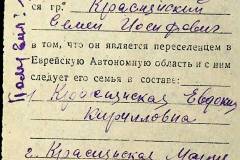 ся гр. Красицкий
Семен Иосифович
в том, что он является переселенцем в
Еврейскую Автономную область и с ним
следует его семья в составе:
1. Красицкая Евдокия
Кирилловна
2. Красицкая Мария
Получил: